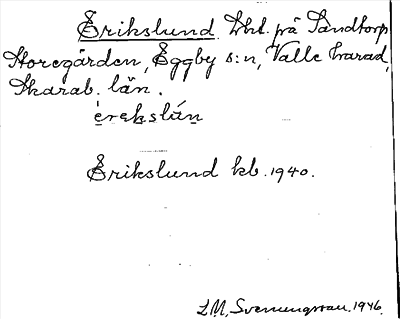 Erikslund Lht. på Sandtorp
Storegården, Eggby s:n, Valle härad,
Skarab. län.
èrekslún
Erikslund kb. 1940.
L.M. Svenungsson. 1946.